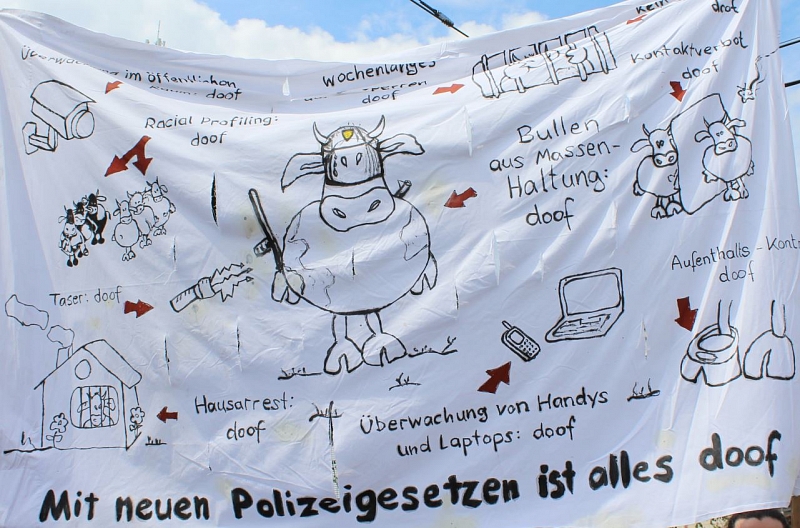 im öffentlichen
doof
wochenlanges
doof
kein
doof
Kontaktverbot
doof
Racial Profiling:
doof
Bullen
aus Massen-
Haltung:
doof
Taser: doof
Aufenthalts-Kontr
doof
Hausarrest:
doof
Überwachung von Handys
und Laptops: doof
Mit neuen Polizeigesetzen ist alles doof